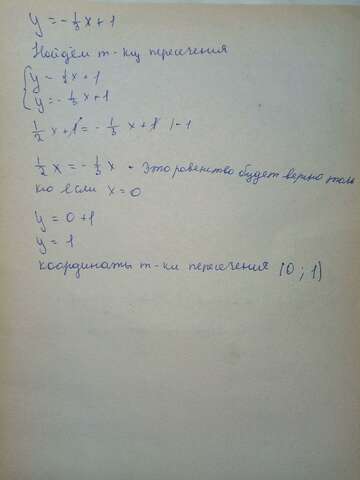 y = -⅓x + 1
Найдём т-ки пересечения
{ y = ½x + 1
y = -⅓x + 1
½x + 1 = -⅓x + 1 | -1
½x = -⅓x - Это равенство будет верно толь
ко если x = 0
y = 0+1
y = 1
координаты т-ки пересечения (0 ; 1)